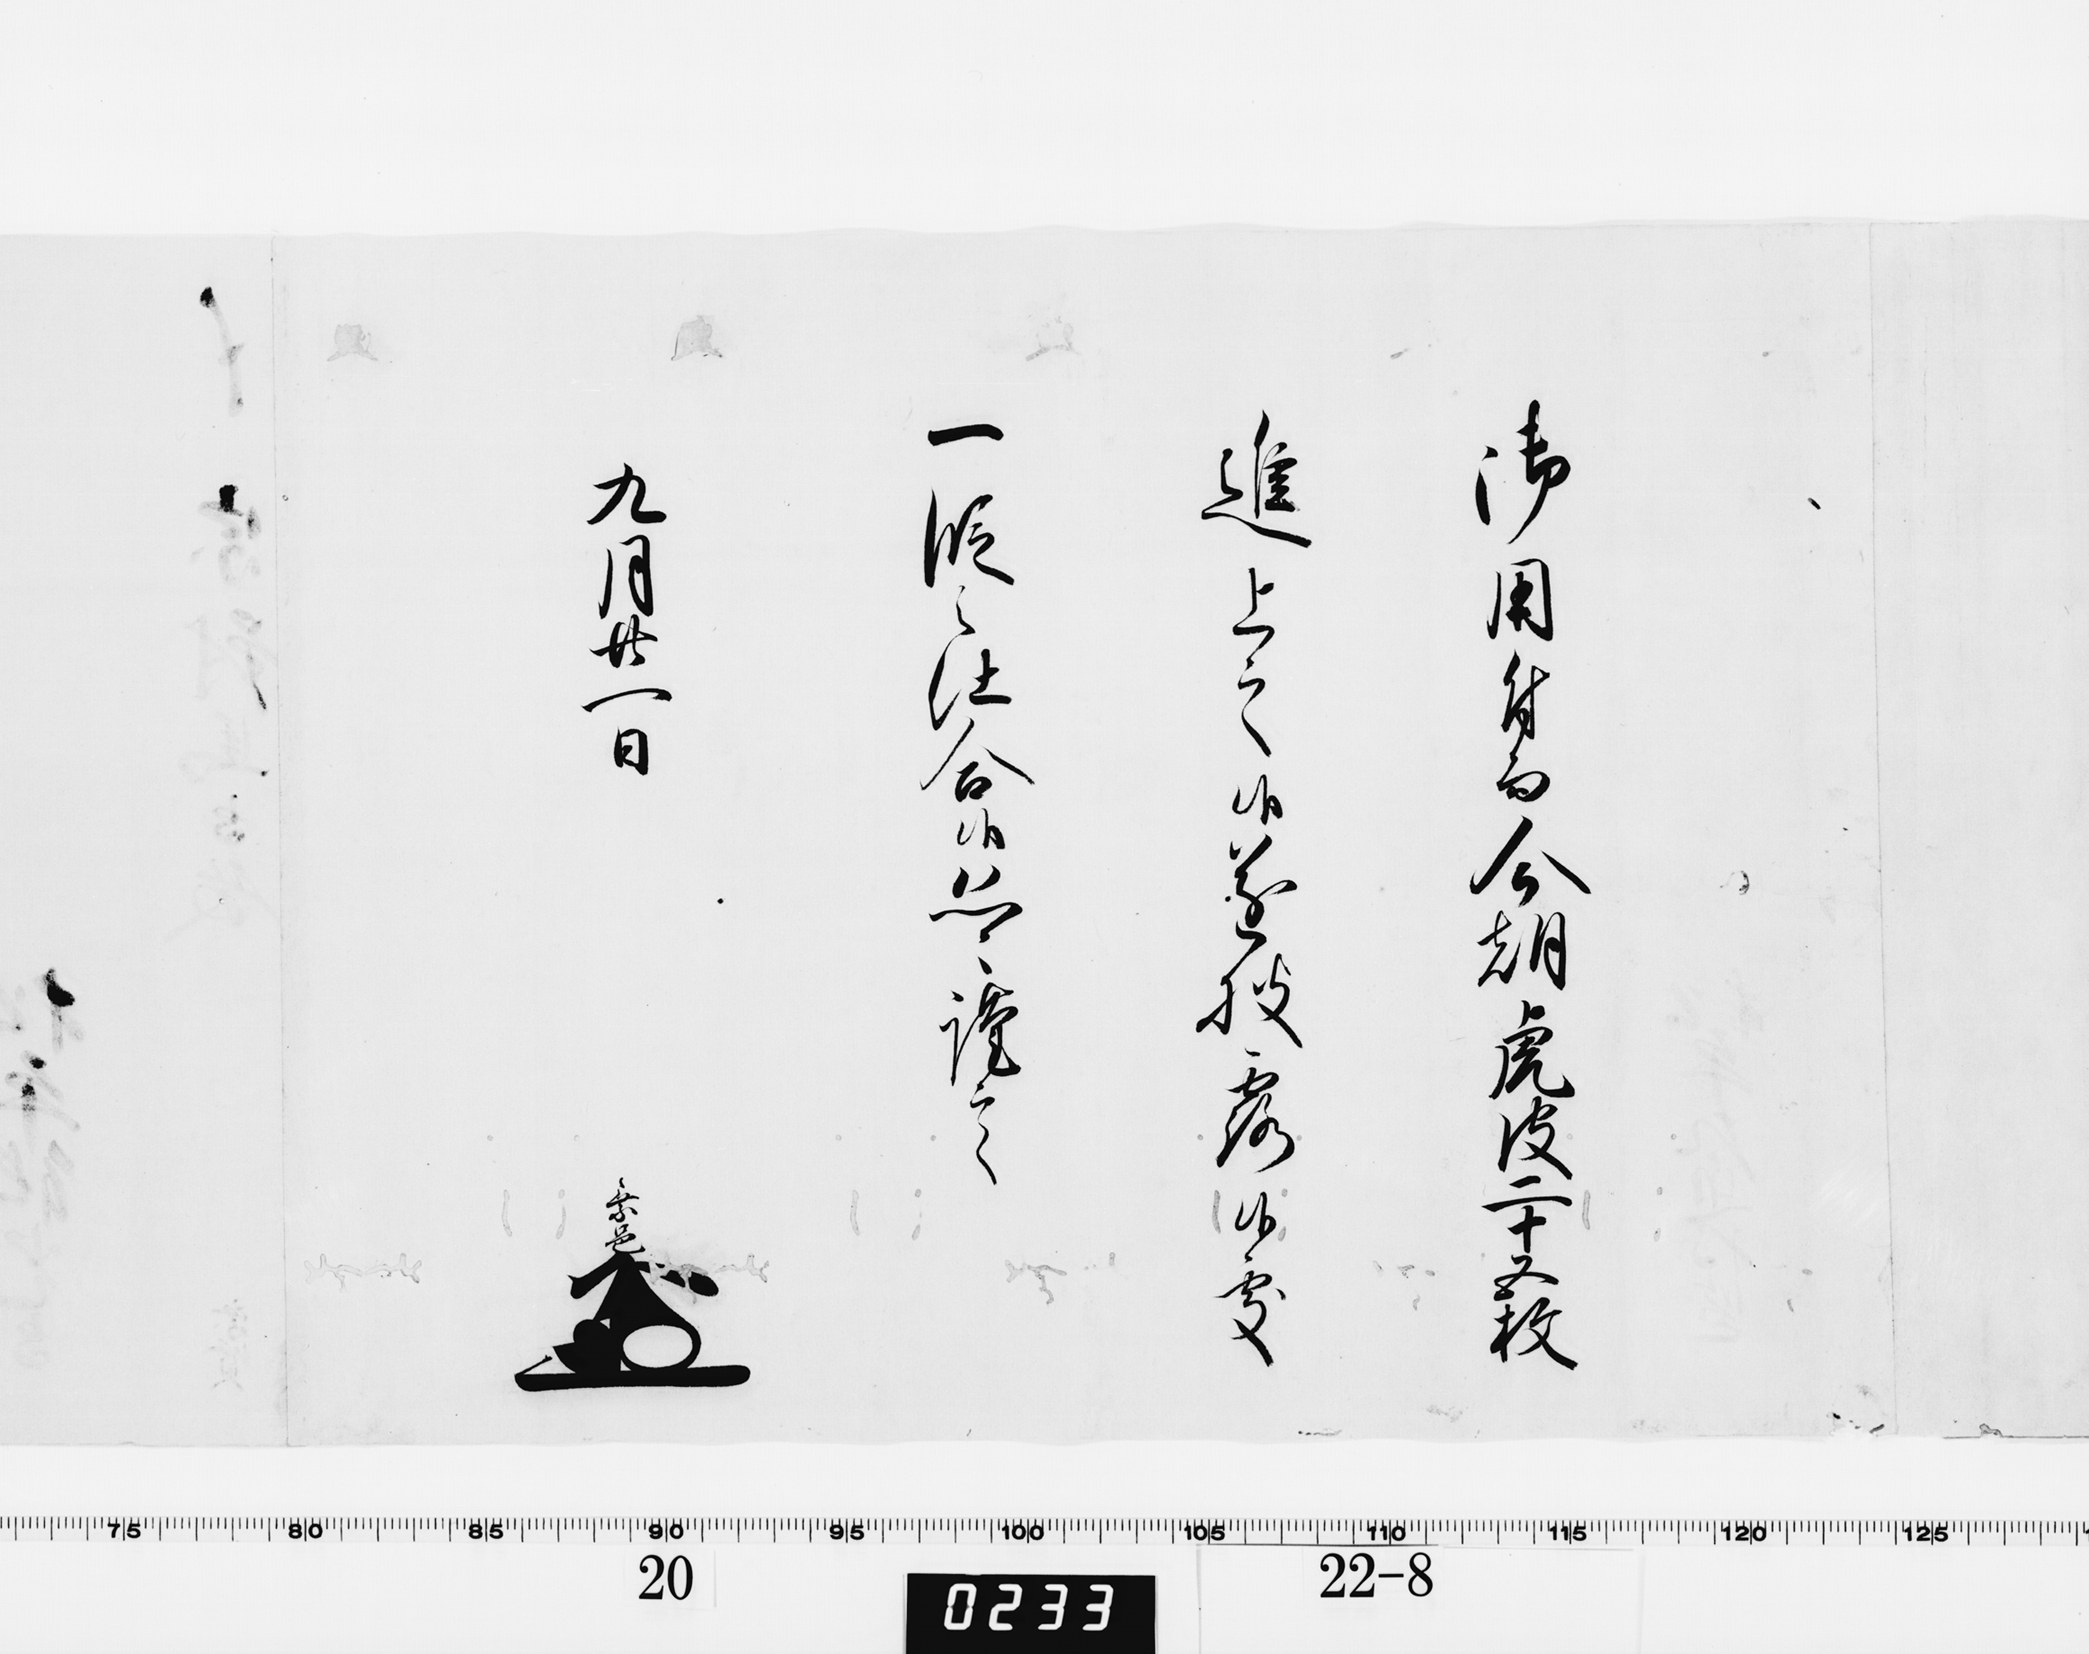 御用付而今朝虎皮二十五枚
進上之候遂披露候處
一段之仕合候恐々謹言
九月廿一日
乗邑
75 80 85 90 95 100 105 110 115 120 125
20
0233
22-8